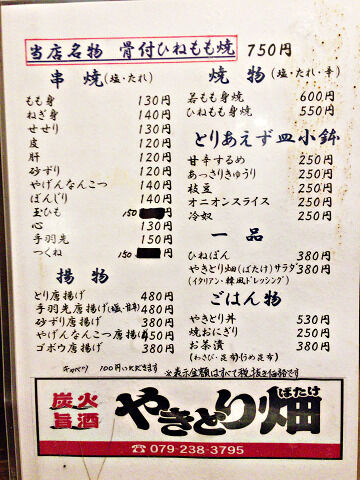 当店名物 骨付ひねもも焼 750円
串焼(塩・たれ)
もも身 130円
ねぎ身 140円
せせり 130円
皮 120円
肝 120円
砂ずり 120円
やげんなんこつ 140円
ぼんじり 140円
玉ひも 150
心 130円
手羽先 150円
つくね 150
揚物
とり唐揚げ 480円
手羽先唐揚げ(塩・甘辛) 480円
砂ずり唐揚げ 380円
やげんなんこつ唐揚げ 450円
ゴボウ唐揚げ 380円
キャベツ 100円いただきます
焼物(塩・たれ・辛)
若もも身焼 600円
ひねもも身焼 550円
とりあえず皿小鉢
甘辛するめ 250円
あっさりきゅうり 250円
枝豆 250円
オニオンスライス 250円
冷奴 250円
一品
ひねぽん 380円
やきとり畑(ばたけ)サラダ 380円
(イタリアン・韓風ドレッシング)
ごはん物
やきとり丼 530円
焼おにぎり 250円
お茶漬 380円
(わさび・昆布・うめ昆布)
※表示金額はすべて税抜き価格です
炭火
旨酒
やきとり畑
ばたけ
☎079-238-3795